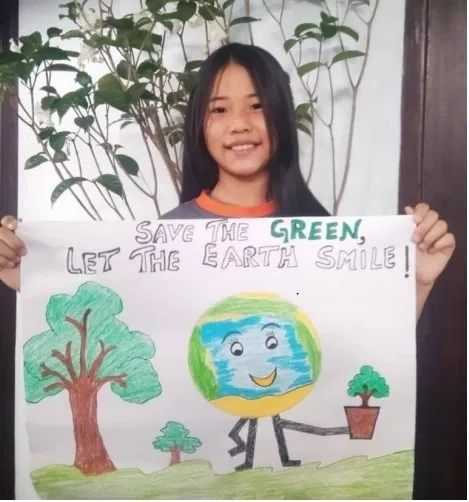 SAVE THE GREEN,
LET THE EARTH SMILE!